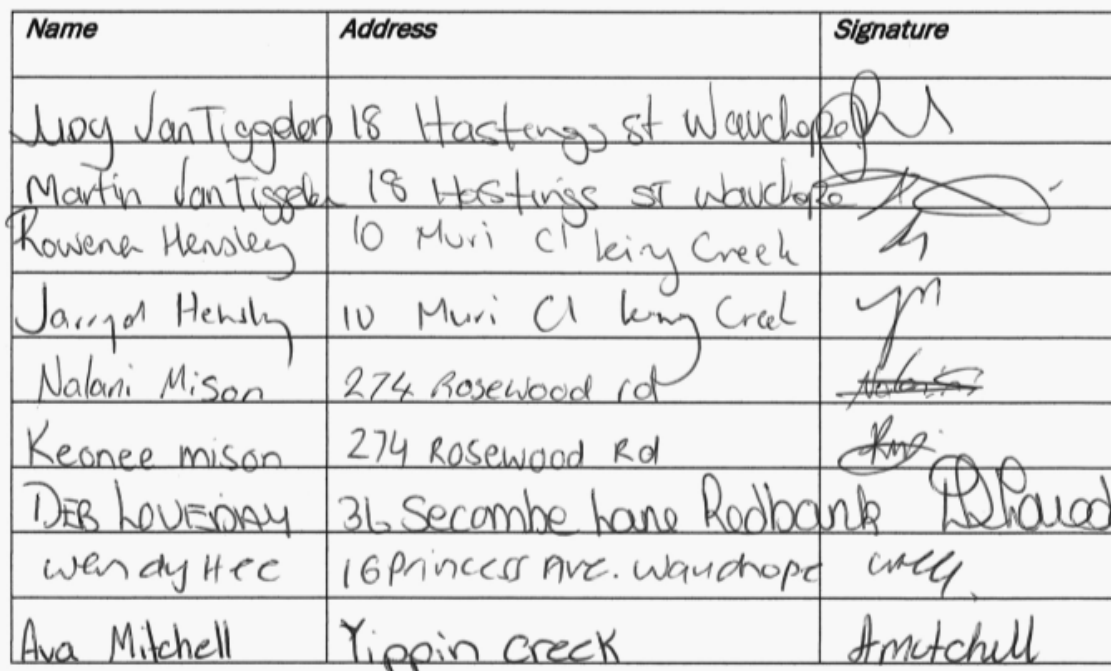 Name Address Signature
Judy Van Tiggelen 18 Hastings st Wauchope
Martin Van Tiggelen 18 Hastings ST Wauchope
Rowena Hensley 10 Muri Cl King Creek
Jarryd Hensley 10 Muri Cl King Creek
Nalani Mison 274 Rosewood rd
Keonee mison 274 Rosewood Rd
DEB LOVEDAY Secombe Lane Redbank
wendy Hee 16 Princess Ave. Wauchope
Ava Mitchell Yippin creek Amitchell